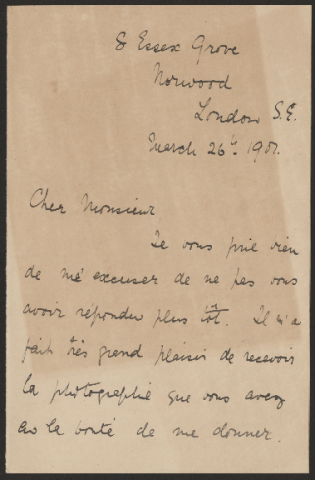 8 Essex Grove
Norwood
London S.E.
March 26th 1901.
Cher Monsieur
Je vous prie bien
de m'excuser de ne pas vous
avoir répondu plus tôt. Il m'a
fait très grand plaisir de recevoir
la photographie que vous avez
eu la bonté de me donner.